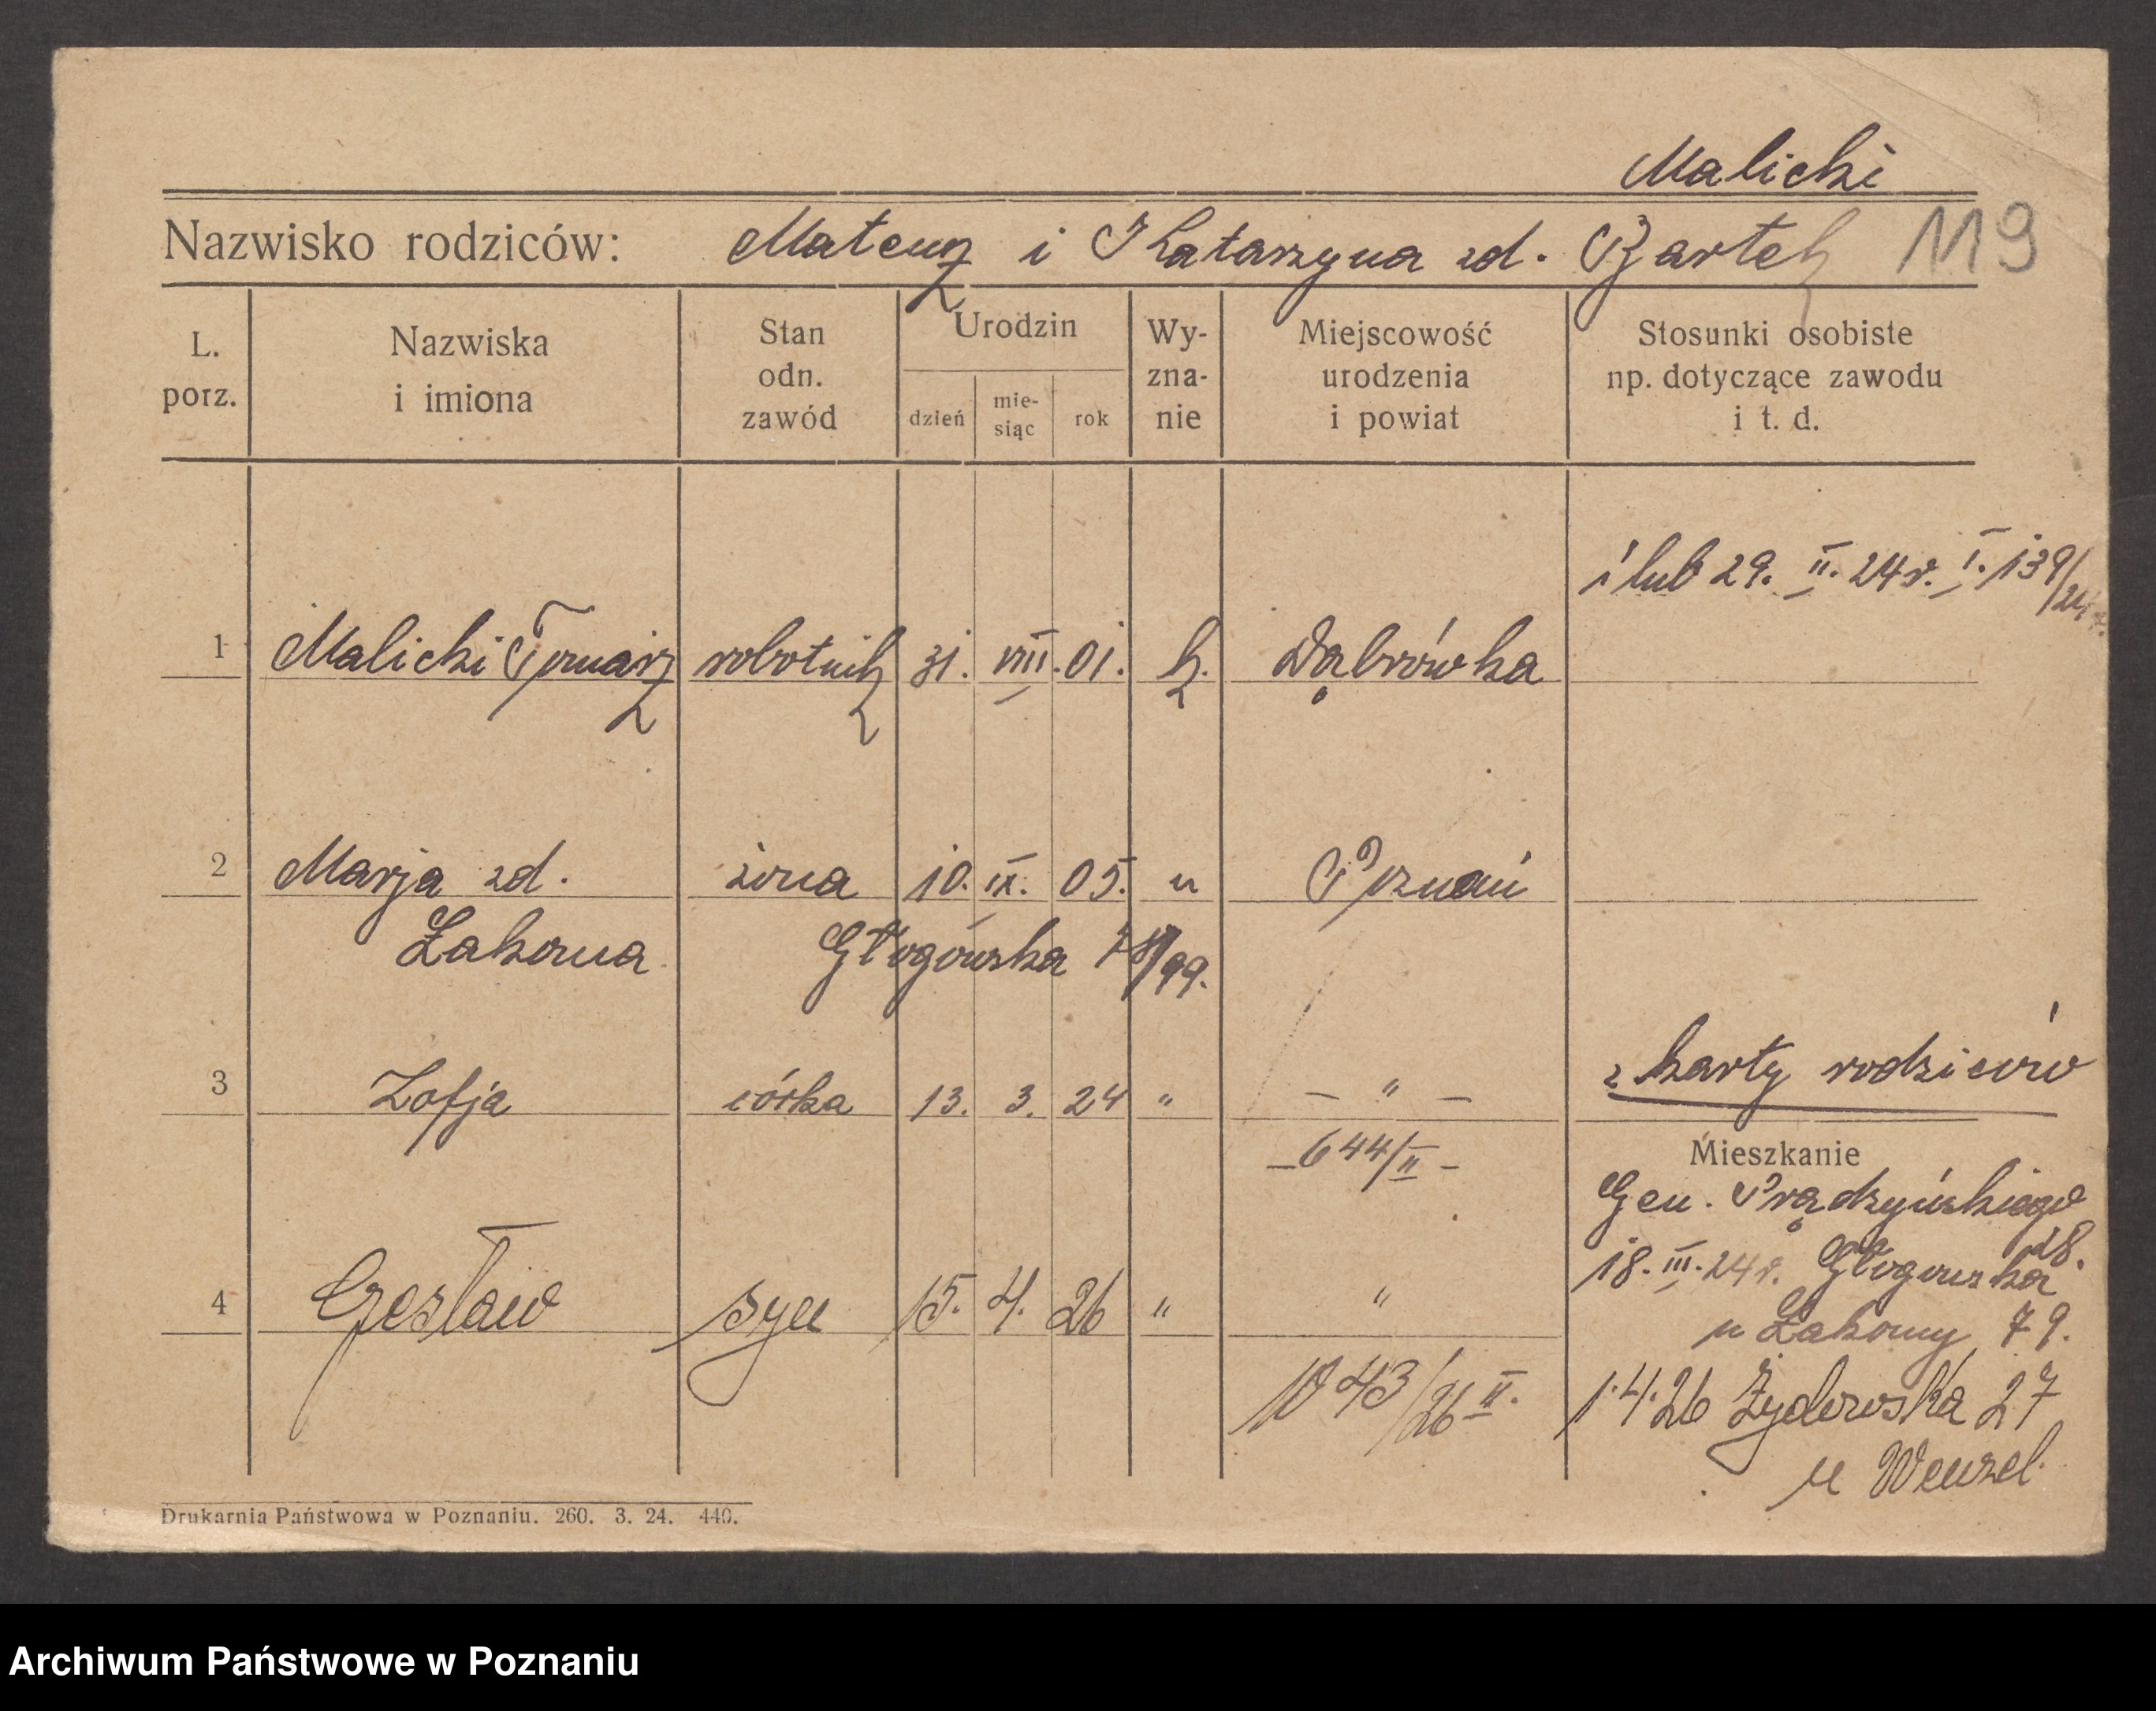 Malicki
Nazwisko rodziców: Mateusz i Katarzyna zd. Bartek 119
L. porz.
Nazwiska i imiona
Stan odn. zawód
Urodzin
dzień
mie- siąc
rok
Wy- zna- nie
Miejscowość urodzenia i powiat
Stosunki osobiste np. dotyczące zawodu i t. d.
ślub 29. II. 24 r. I. 139/24 r.
1 Malicki Tomasz robotnik 31. VIII. 01. k. Dąbrówka
2 Marja zd. żona 10. IX. 05. " Poznań
Łakoma Głogówska 99.
3 Zofja córka 13. 3. 24 " — " — z karty rodziców
— 644/II —
Mieszkanie
Gen. Prądzyńskiego
28.
18. III. 24 r. Głogowska
u Łakomy 79.
4 Czesław syn 15. 4. 26 " "
1043/26 II.
1.4.26 Żydowska 27
u Wenzel.
Drukarnia Państwowa w Poznaniu. 260. 3. 24. 440.
Archiwum Państwowe w Poznaniu